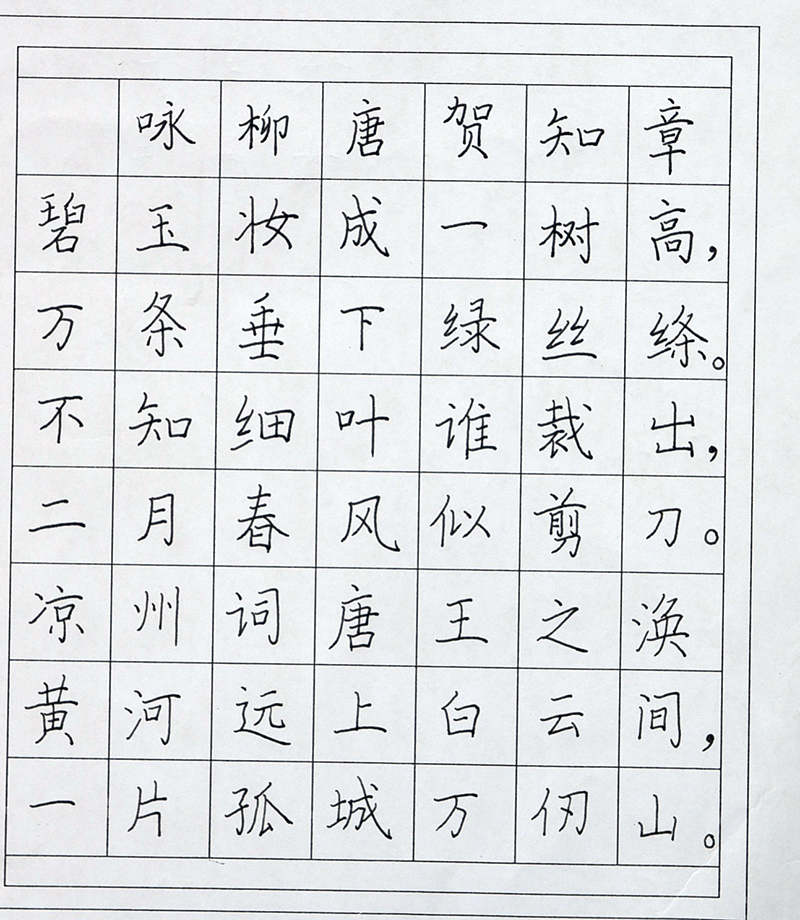 咏柳唐贺知章
碧玉妆成一树高，
万条垂下绿丝绦。
不知细叶谁裁出，
二月春风似剪刀。
凉州词唐王之涣
黄河远上白云间，
一片孤城万仞山。